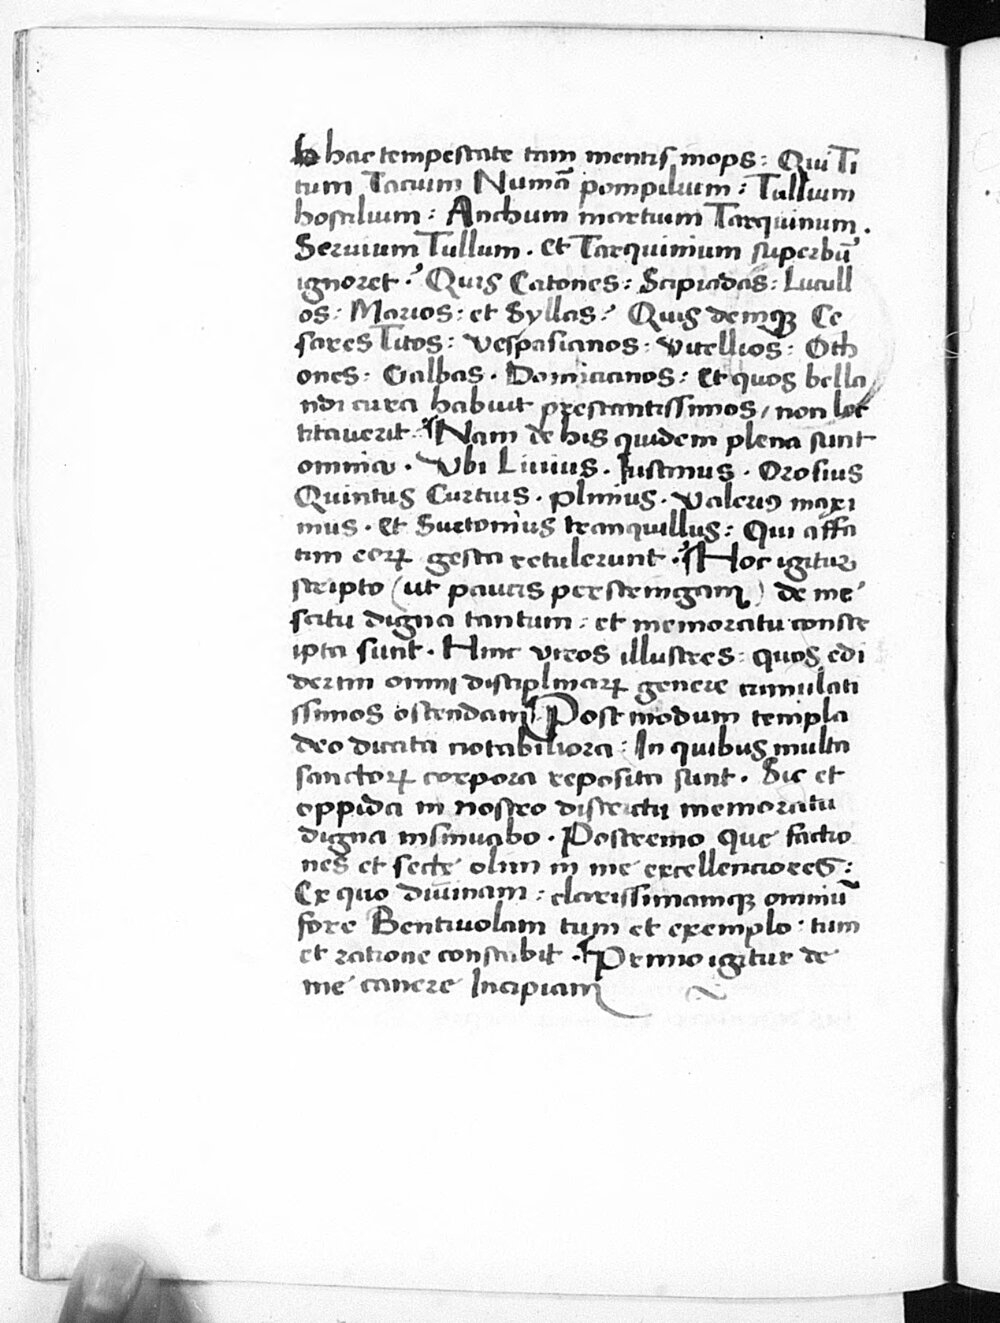 hac tempestate tam mentis inops: Qui Ti
tum Tacium Numā pompilium: Tullium
hostilium: Anchum martium Tarquinum.
Seruium Tullum. et Tarquinium superbū
ignoret? Quis Catones: Scipiadas: Lucull
os: Marios: et Syllas? Quis demqꝫ Ce
sares Titos: Vespasianos: Vitellios: Oth
ones: Galbas. Domicianos: Et quos bella
ndi cura habuit prestantissimos / non lec
titauerit. Nam de his quidem plena sunt
omnia. Vbi Liuius. Iustinus. Orosius
Quintus Curtius. plinius. Valeriꝰ maxi
mus. et Suetonius tranquillus: Qui affa
tim eoꝝ gesta retulerunt. Hoc igitur
scripto (ut paucis perstringam) de me
scitu digna tantum: et memoratu conscr
ipta sunt. Hinc viros illustres: quos edi
derim omni disciplinaꝝ genere cumulati
ssimos ostendam. Post modum templa
deo dicata notabiliora: In quibus multa
sanctoꝝ corpora reposita sunt. Sic et
oppida in nostro districtu memoratu
digna insinuabo. Postremo que factio
nes et secte olim in me excellenciores:
Ex quo diuinam: clarissimamqꝫ omniū
fore Bentiuolam tum et exemplo: tum
et ratione constabit. Primo igitur de
me canere Incipiam